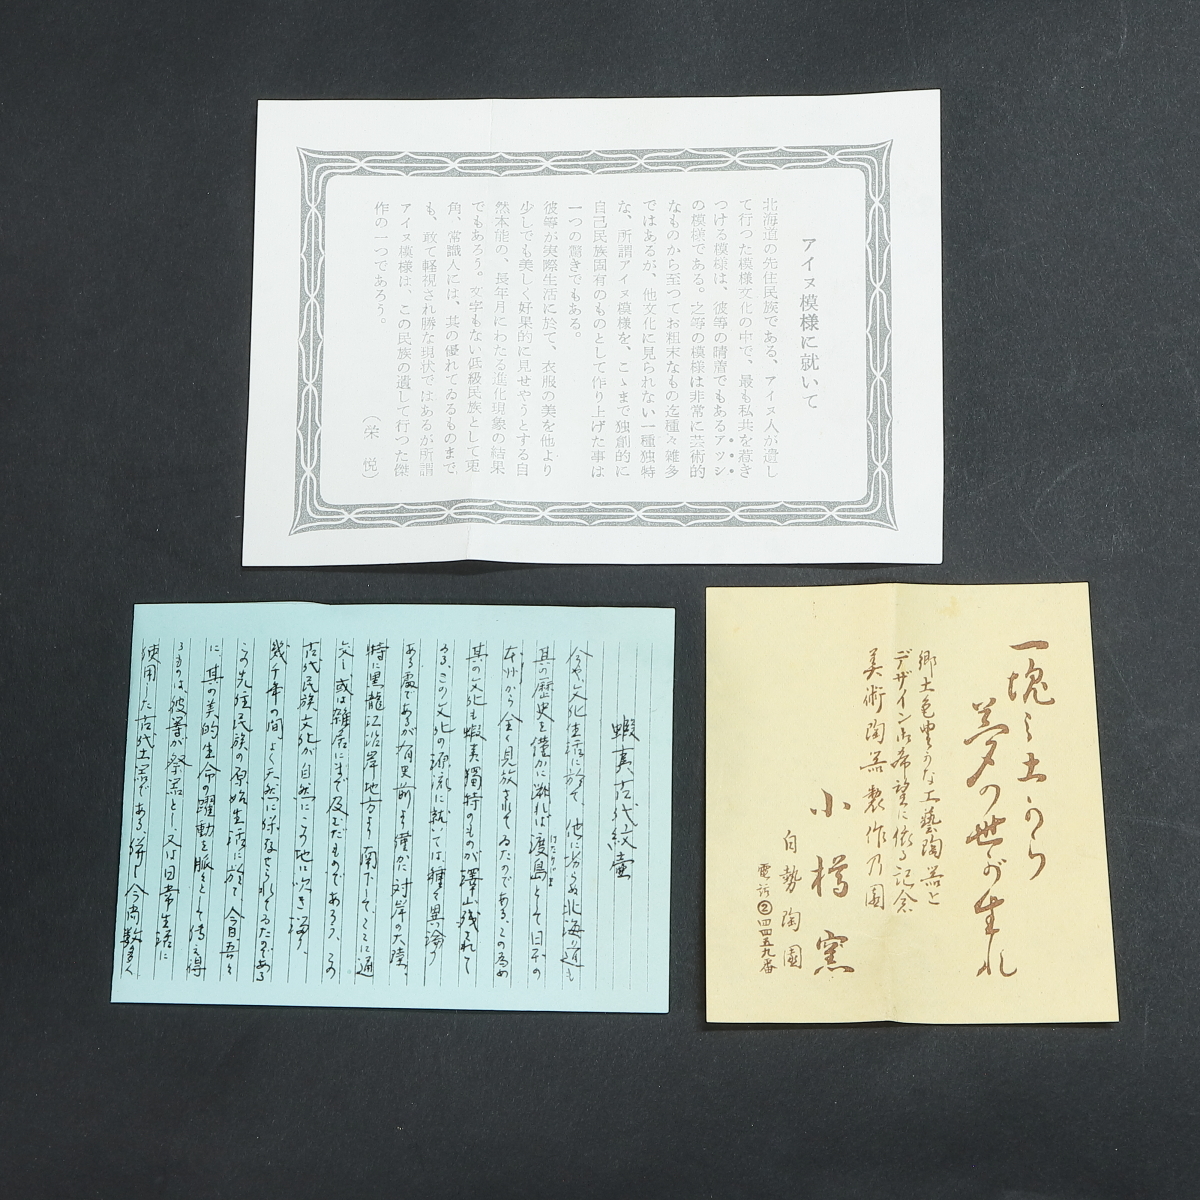 アイヌ模様に就いて
北海道の先住民族である、アイヌ人が遺し
て行つた模様文化の中で、最も私共を惹き
つける模様は、彼等の晴着でもあるアツシ
の模様である。之等の模様は非常に芸術的
なものから至つてお粗末なもの迄種々雑多
ではあるが、他文化に見られない一種独特
な、所謂アイヌ模様を、こゝまで独創的に
自己民族固有のものとして作り上げた事は
一つの驚きでもある。
彼等が実際生活に於て、衣服の美を他より
少しでも美しく好果的に見せやうとする自
然本能の、長年月にわたる進化現象の結果
でもあろう。文字もない低級民族として兎
角、常識人には、其の優れてゐるものまで
も、敢て軽視され勝な現状ではあるが所謂
アイヌ模様は、この民族の遺して行つた傑
作の一つであろう。
（栄悦）
蝦夷古代紋壷
今や、文化生活に於て、他に劣らぬ北海道も
其の歴史を僅かに溯れば渡島として日本の
本州から全く見放されてゐたのである、この為め
其の文化も蝦夷獨特のものが澤山残されて
ゐる、この文化の源流に就いては種々異論の
ある處であるが有史前より僅かに対岸の大陸、
特に黒龍江沿岸地方より南下してここに通
交し或は雑居にまで及むだものであろう、この
古代民族文化が自然にこの地に吹き溜り、
幾千年の間よく天然に保存せられてゐたのである
この先住民族の原始生活に於て、今日吾々
に、其の美的生命の躍動を脈々として傳え得
るものは、彼等が祭器とし又は日常生活に
使用した古代土器である、併し今尚数多く
一塊之土から
夢の世が生れ
郷土色豊かな工藝陶器と
デザイン御希望に依る記念
美術陶器製作乃園
小樽窯
白勢陶園
電話②四四五九番